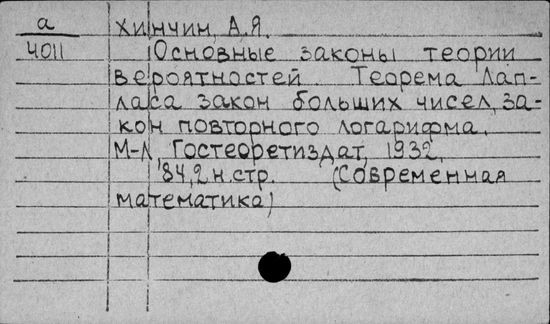 а
4011
Хинчин, А.Я.
Основные законы теории
вероятностей Теорема Лап-
ласа закон больших чисел, за-
кон повторного логарифма.
М-Л, Гостеоретиздат, 1932.
84,2 н.стр. (Современная
математика)